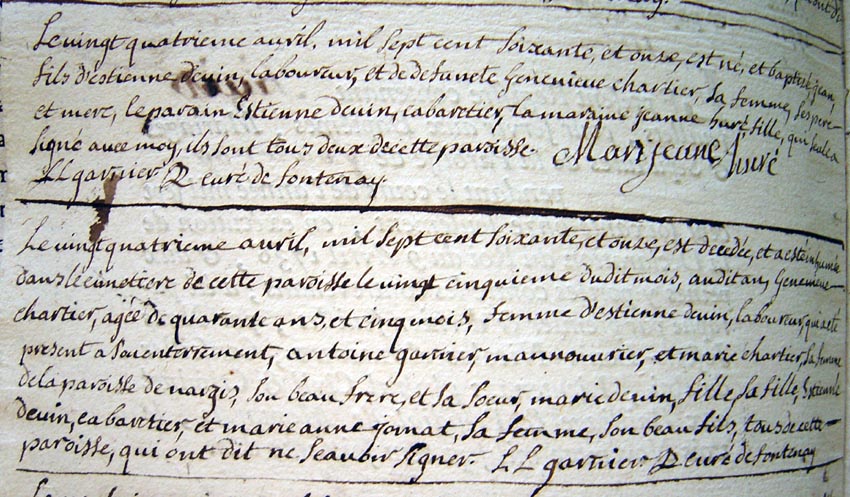 Le vingt quatrieme avril, mil sept cent soixante, et onze, est né, et baptisé jean,
fils d'estienne devin, laboureur, et de defuncte Genevieve chartier, sa femme, ses pere
et mere, le parain Estienne devin, cabaretier, la maraine jeanne huré fille, qui seule a
signé avec moy, ils sont tous deux de cette paroisse. Marijeane huré
LL garnier P curé de fontenay
Le vingt quatrieme avril, mil sept cent soixante, et onze, est decedée, et a esté inhumée
dans le cimetiere de cette paroisse le vingt cinquieme dudit mois, audit an, Genevieve
chartier, agée de quarante ans, et cinq mois, femme d'estienne devin, laboureur, qui a eté
present a son enterrement, antoine garnier, manouvrier, et marie chartier, sa femme
de la paroisse de nargis, son beau frere, et sa soeur, marie devin, fille, sa fille, Estienne
devin, cabaretier, et marie anne jornat, sa femme, son beau fils, tous de cette
paroisse, qui ont dit ne scavoir signer. LL garnier P curé de fontenay